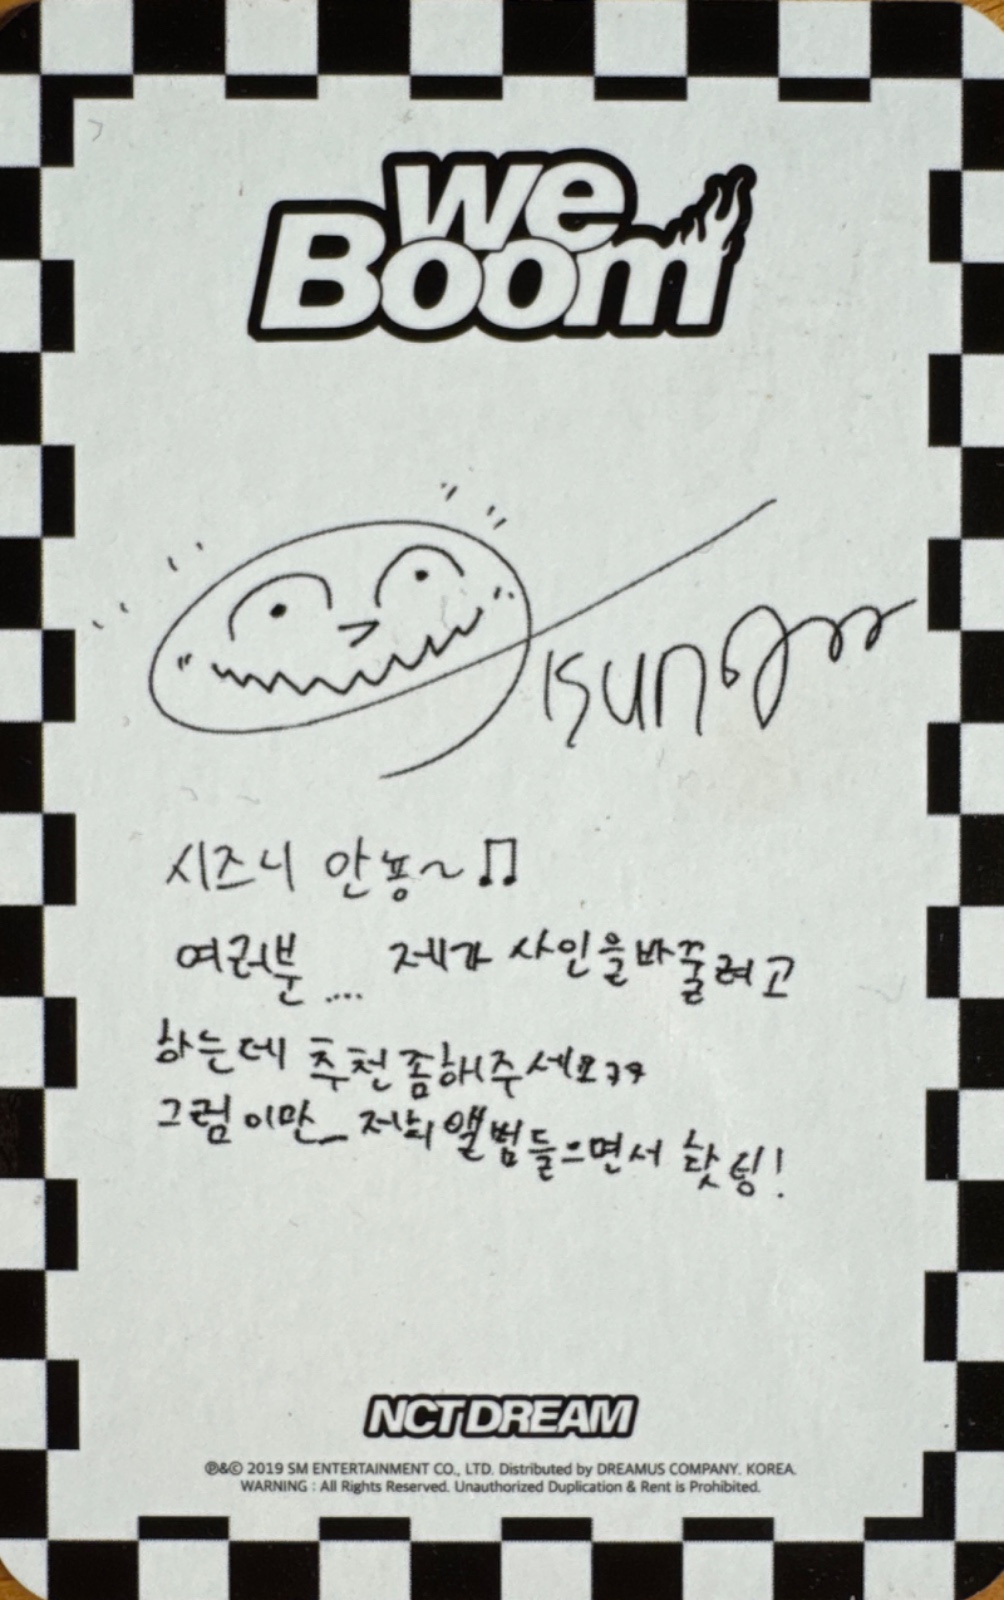 we
Boom
ısung
시즈니 안뇽~♫
여러분.... 제가 사인을 바꿀려고
하는데 추천 좀 해주세요ㅋㅋ
그럼 이만_ 저희 앨범 들으면서 핫팅!
NCT DREAM
℗&© 2019 SM ENTERTAINMENT CO., LTD. Distributed by DREAMUS COMPANY. KOREA.
WARNING : All Rights Reserved. Unauthorized Duplication & Rent is Prohibited.